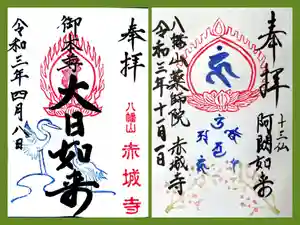 奉拝
御本尊
大日如来
令和三年四月八日
八幡山
赤城寺
奉拝
十三仏
阿閦如来
八幡山薬師院 赤城寺
令和三年十一月一日